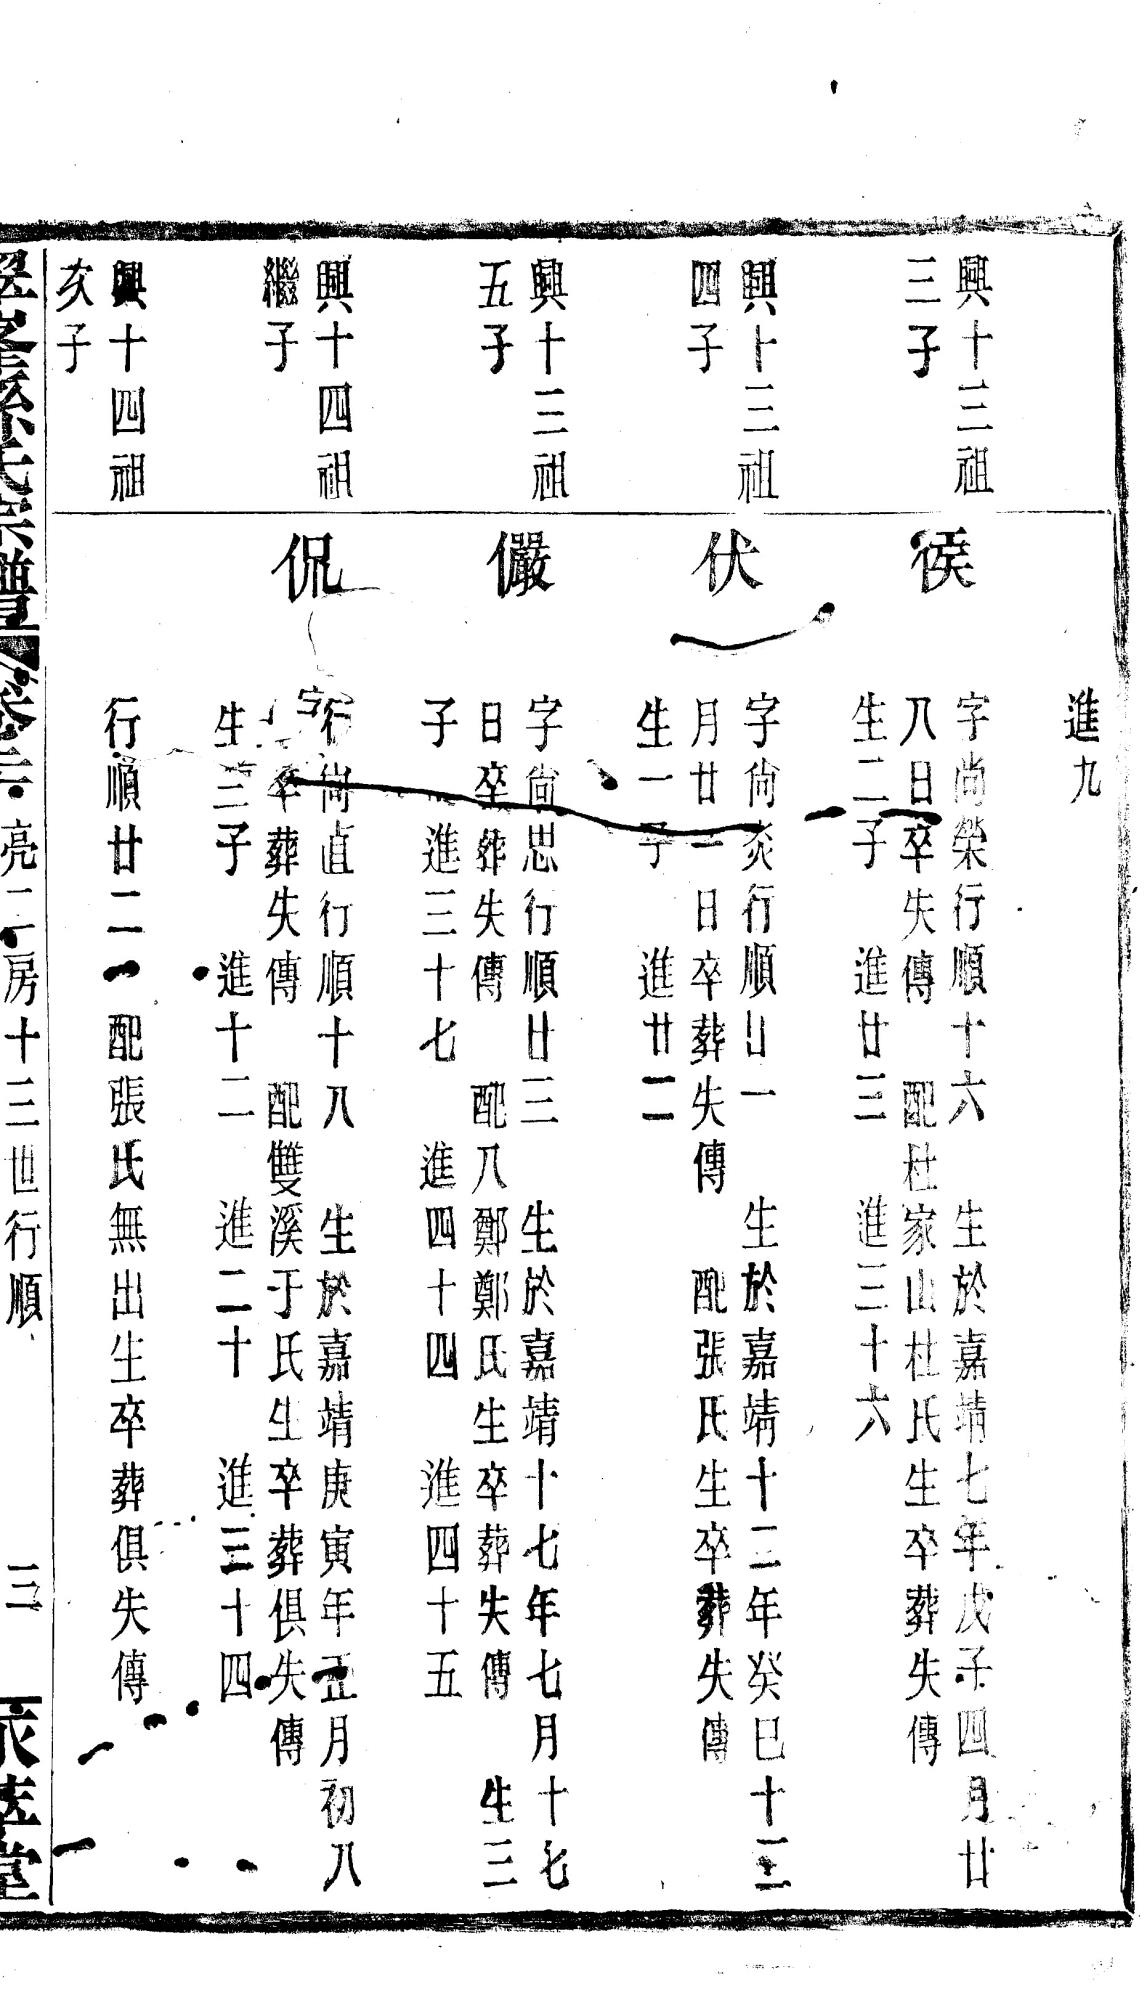 進九
興十三祖
三子
俟
字尚榮行順十六　生於嘉靖七年戊子四月廿
八日卒失傳　配杜家山杜氏生卒葬失傳
生二子　進廿三　進三十六
興十三祖
四子
伏
字尚炎行順廿一　生於嘉靖十二年癸巳十二
月廿一日卒葬失傳　配張氏生卒葬失傳
生一子　進廿二
興十三祖
五子
儼
字尚思行順廿三　生於嘉靖十七年七月十七
日卒葬失傳　配八鄭鄭氏生卒葬失傳　生三
子　進三十七　進四十四　進四十五
興十四祖
繼子
侃
字尚直行順十八　生於嘉靖庚寅年正月初八
卒葬失傳　配雙溪于氏生卒葬俱失傳
生三子　進十二　進二十　進三十四
興十四祖
次子
行順廿二　配張氏無出生卒葬俱失傳
氏宗譜　卷二　亮二房十三世行順　三　堂